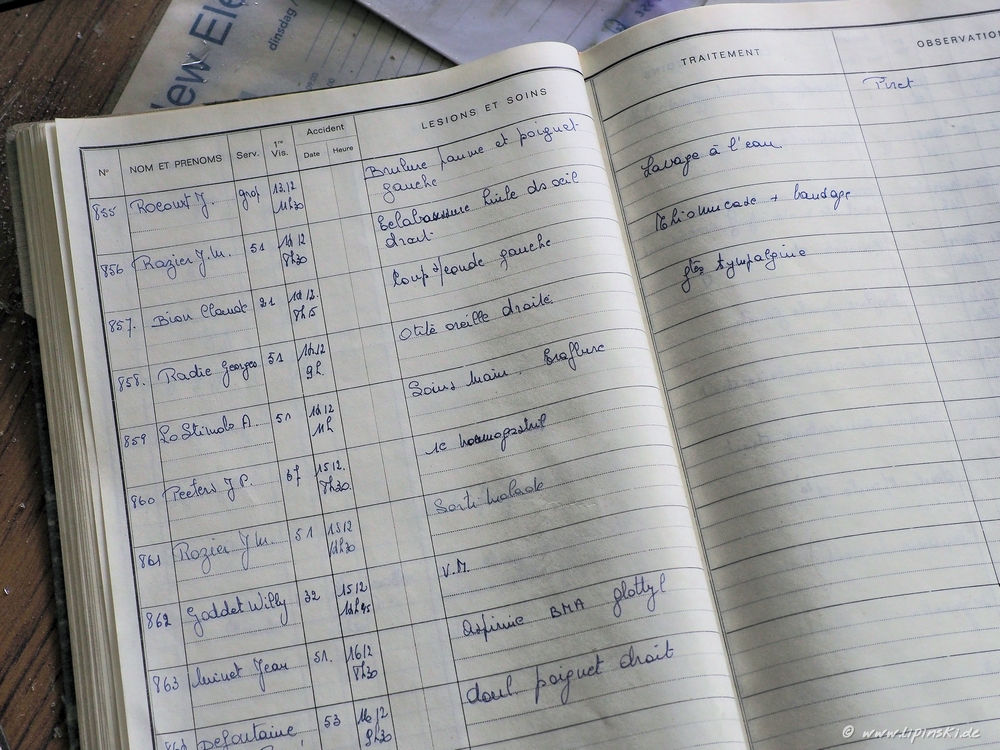 New Ele
dinsdag /
N° NOM ET PRENOMS Serv. 1re Vis. Accident Date Heure LESIONS ET SOINS TRAITEMENT OBSERVATION
855 Rocourt J. 13.12 11h30 Brulure paume et poignet Piret
gauche Lavage à l'eau
856 Razier J.M. 51 14 12 8h30 Eclaboussure huile ds oeil
droit Thiomucase + bandage
857. Bion Claude 21 14 12. 8h15 Coup s/coude gauche gttes Sympalgine
858. Radic Georges 51 14.12 9h. Otite oreille droite
859 Lo Stimolo A. 51 14 12 11h Soins Main. Eraflure
860 Peeters J P. 67 15 12. 8h30 1c
861 Rozier J.M. 51 15 12 11h30 Sorti Malade
862 Goddet Willy 32 15 12 14h45 V.M.
863 Minet Jean 51. 16 12 8h30 Aspirine BMA glottyl
Defontaine 53 16 12 9h30 doul. poignet droit
© www.lipinski.de